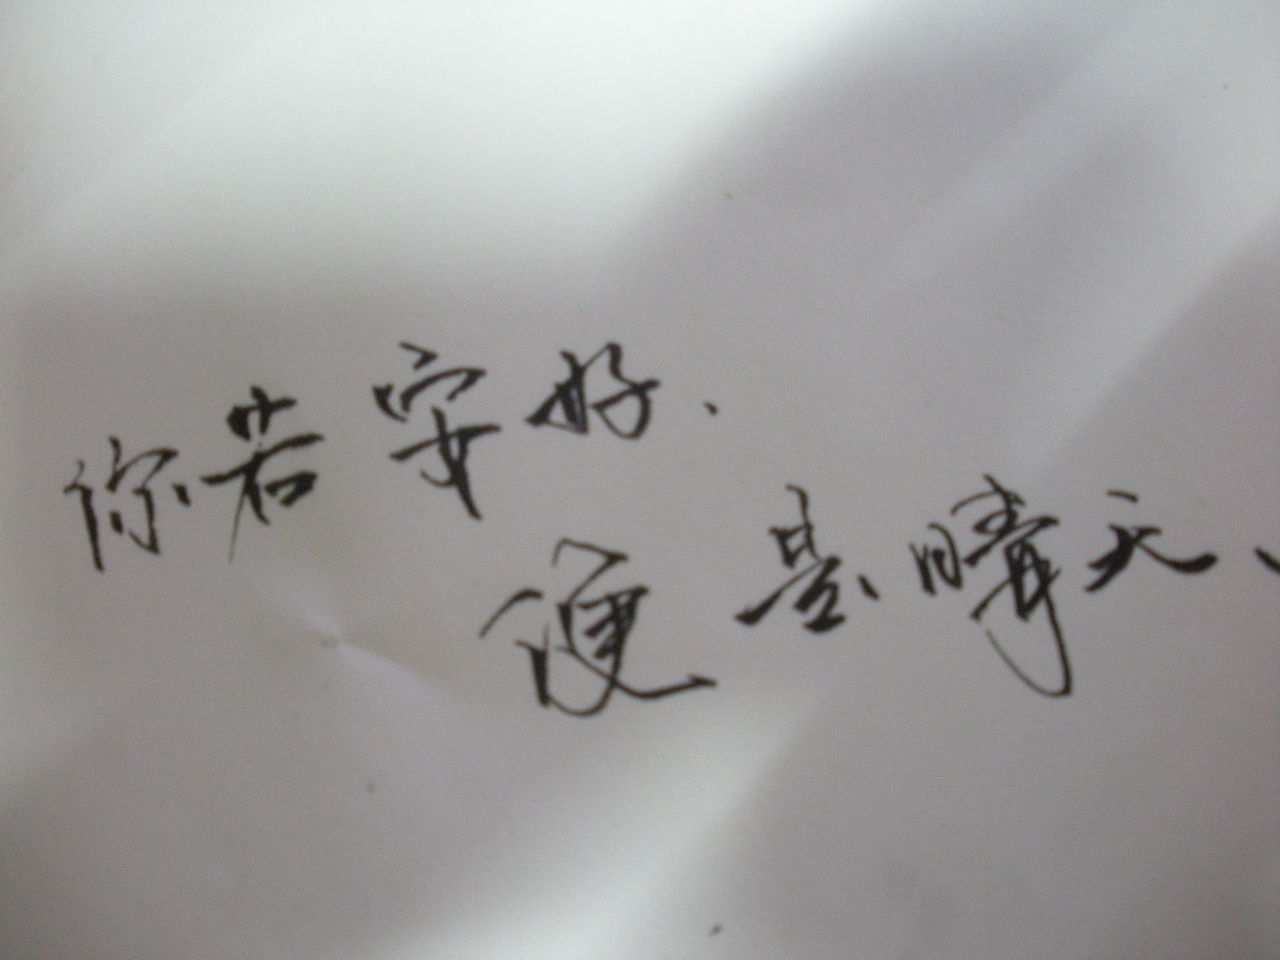 你若安好、
便是晴天、